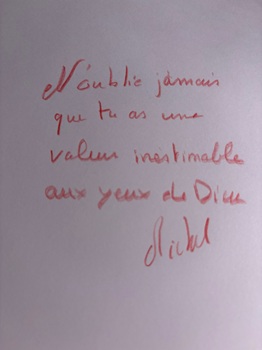 N'oublie jamais
que tu as une
valeur inestimable
aux yeux de Dieu
Michel